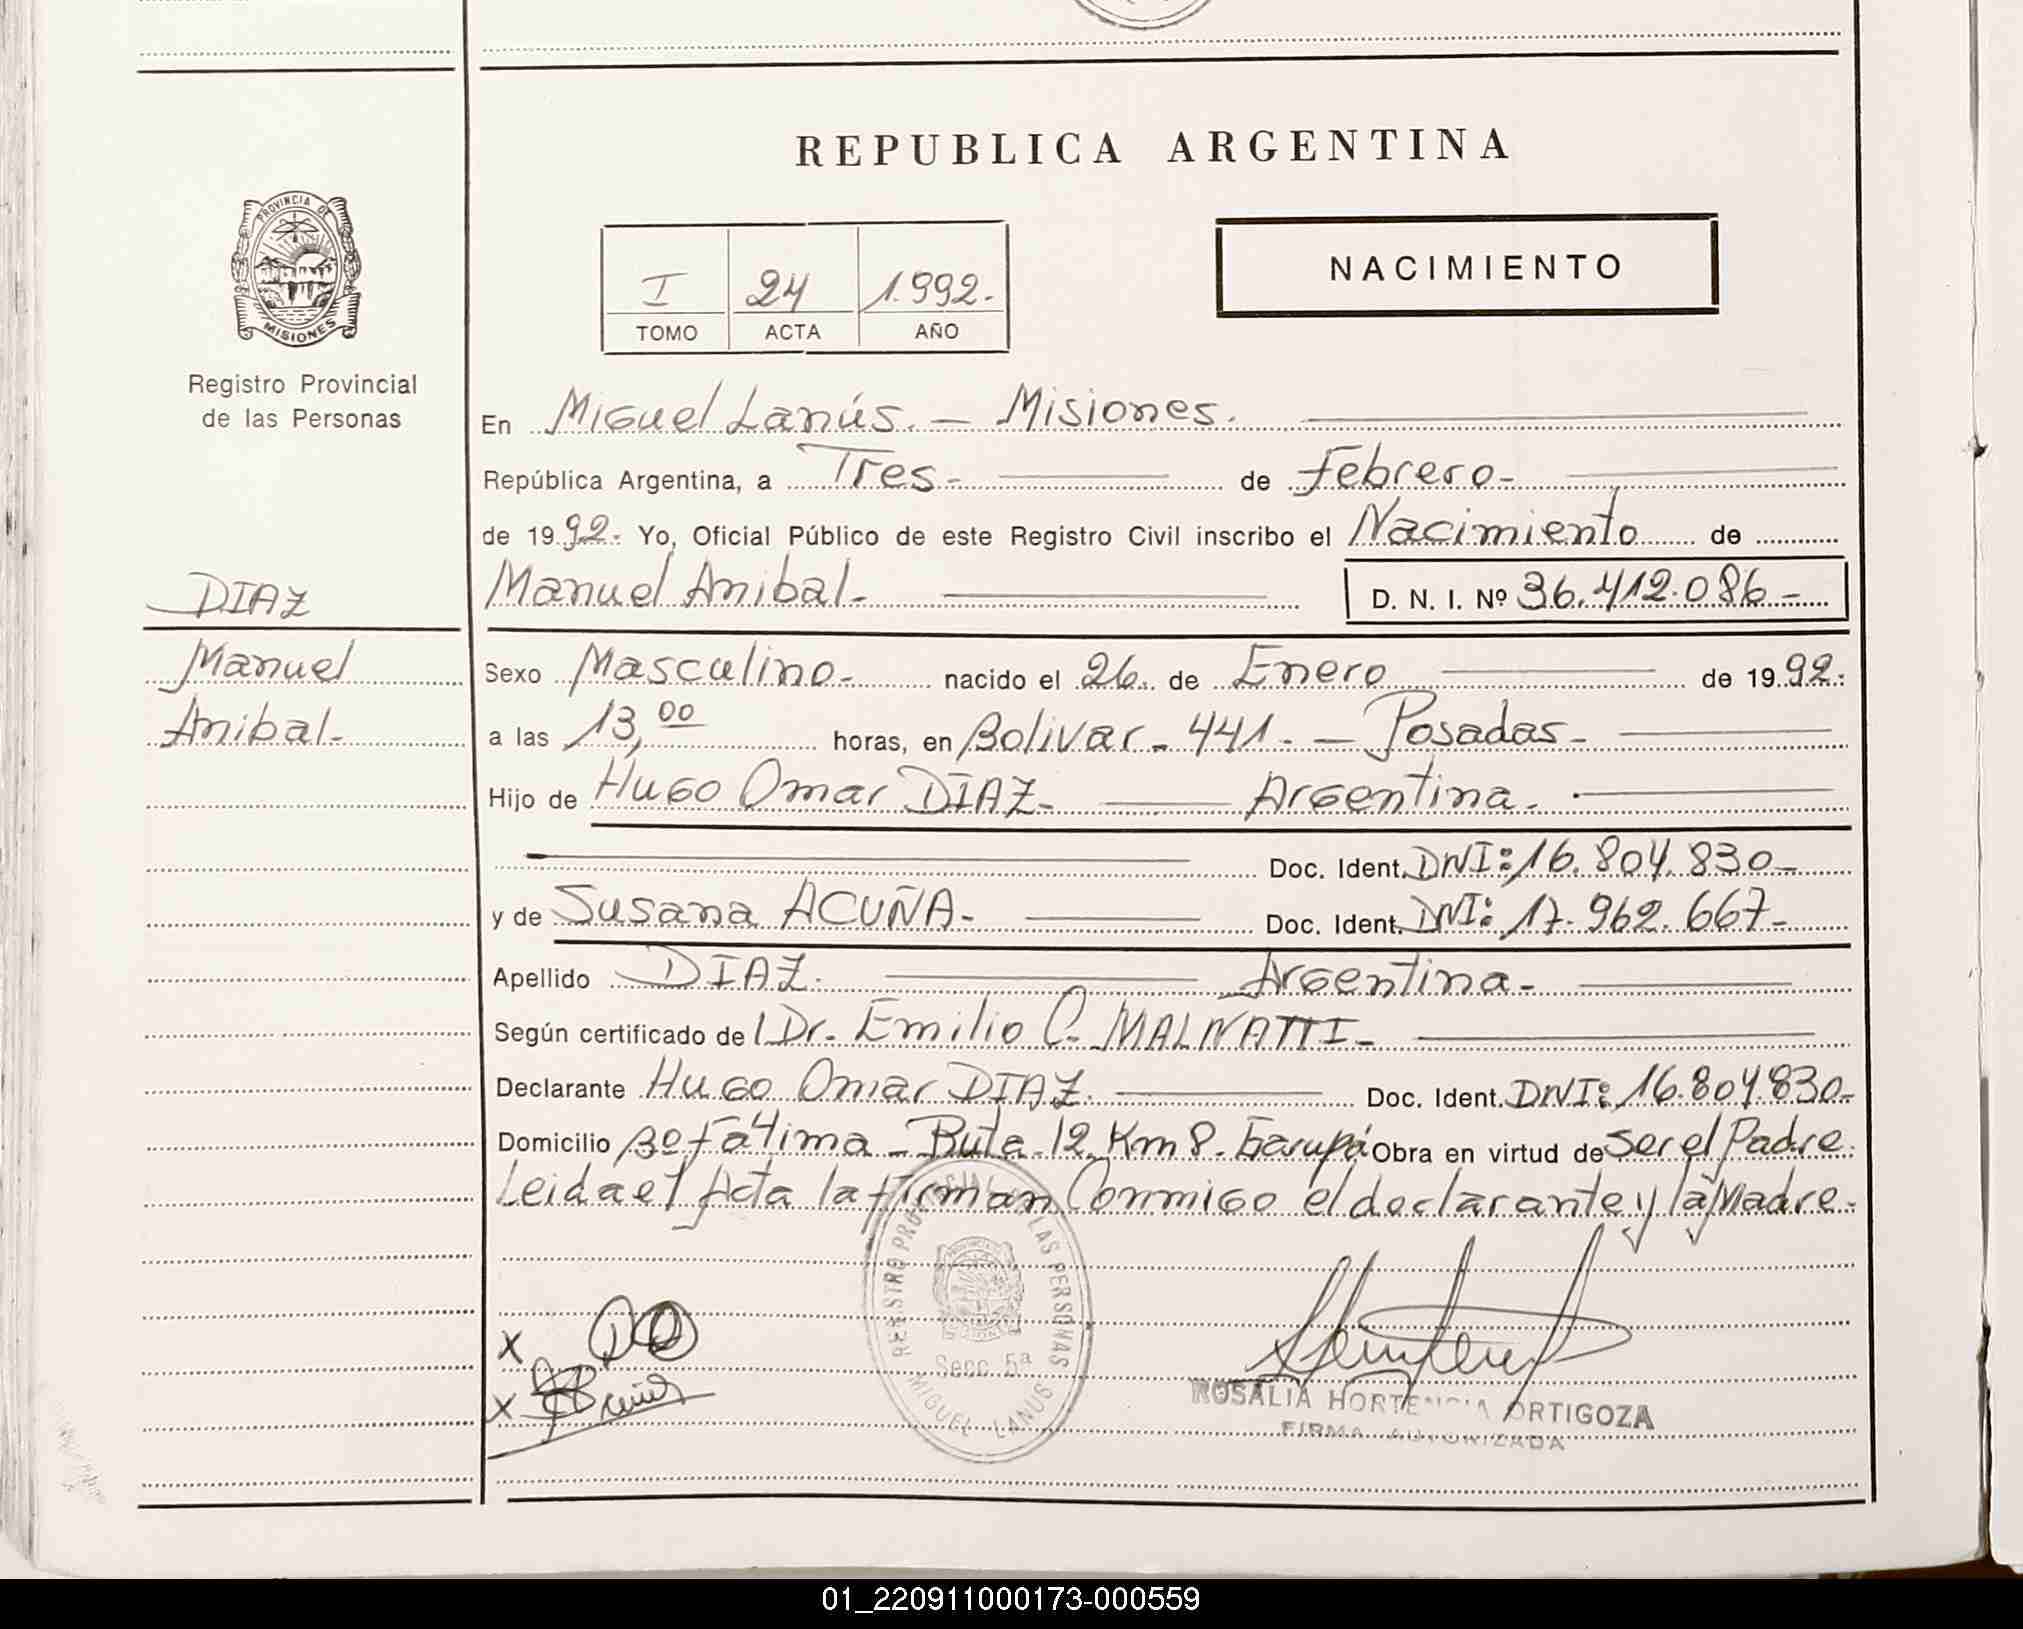 REPUBLICA ARGENTINA
PROVINCIA DE
MISIONES
Registro Provincial
de las Personas
I 24 1.992.-
TOMO ACTA AÑO
NACIMIENTO
En Miguel Lanús. - Misiones.
República Argentina, a Tres- de Febrero-
de 1992.- Yo, Oficial Público de este Registro Civil inscribo el Nacimiento de
Manuel Anibal- D. N. I. Nº 36.412.086-
DIAZ
Manuel
Anibal-
Sexo Masculino- nacido el 26. de Enero de 1992.
a las 13,00 horas, en Bolivar - 441. - Posadas-
Hijo de Hugo Omar DIAZ- Argentina.
Doc. Ident. DNI: 16.804.830-
y de Susana ACUÑA- Doc. Ident. DNI: 17.962.667-
Apellido DIAZ. Argentina-
Según certificado de Dr. Emilio C. MALNATTI-
Declarante Hugo Omar DIAZ. Doc. Ident. DNI: 16.804.830-
Domicilio Bº Fátima - Ruta 12 Km 8. Garupá Obra en virtud de ser el Padre.
Leida el Acta la firman Conmigo el declarante y la Madre-
REGISTRO PROVINCIAL DE LAS PERSONAS
Secc. 5ª
MIGUEL LANUS
x
x
ROSALIA HORTENCIA ORTIGOZA
FIRMA AUTORIZADA
01_220911000173-000559